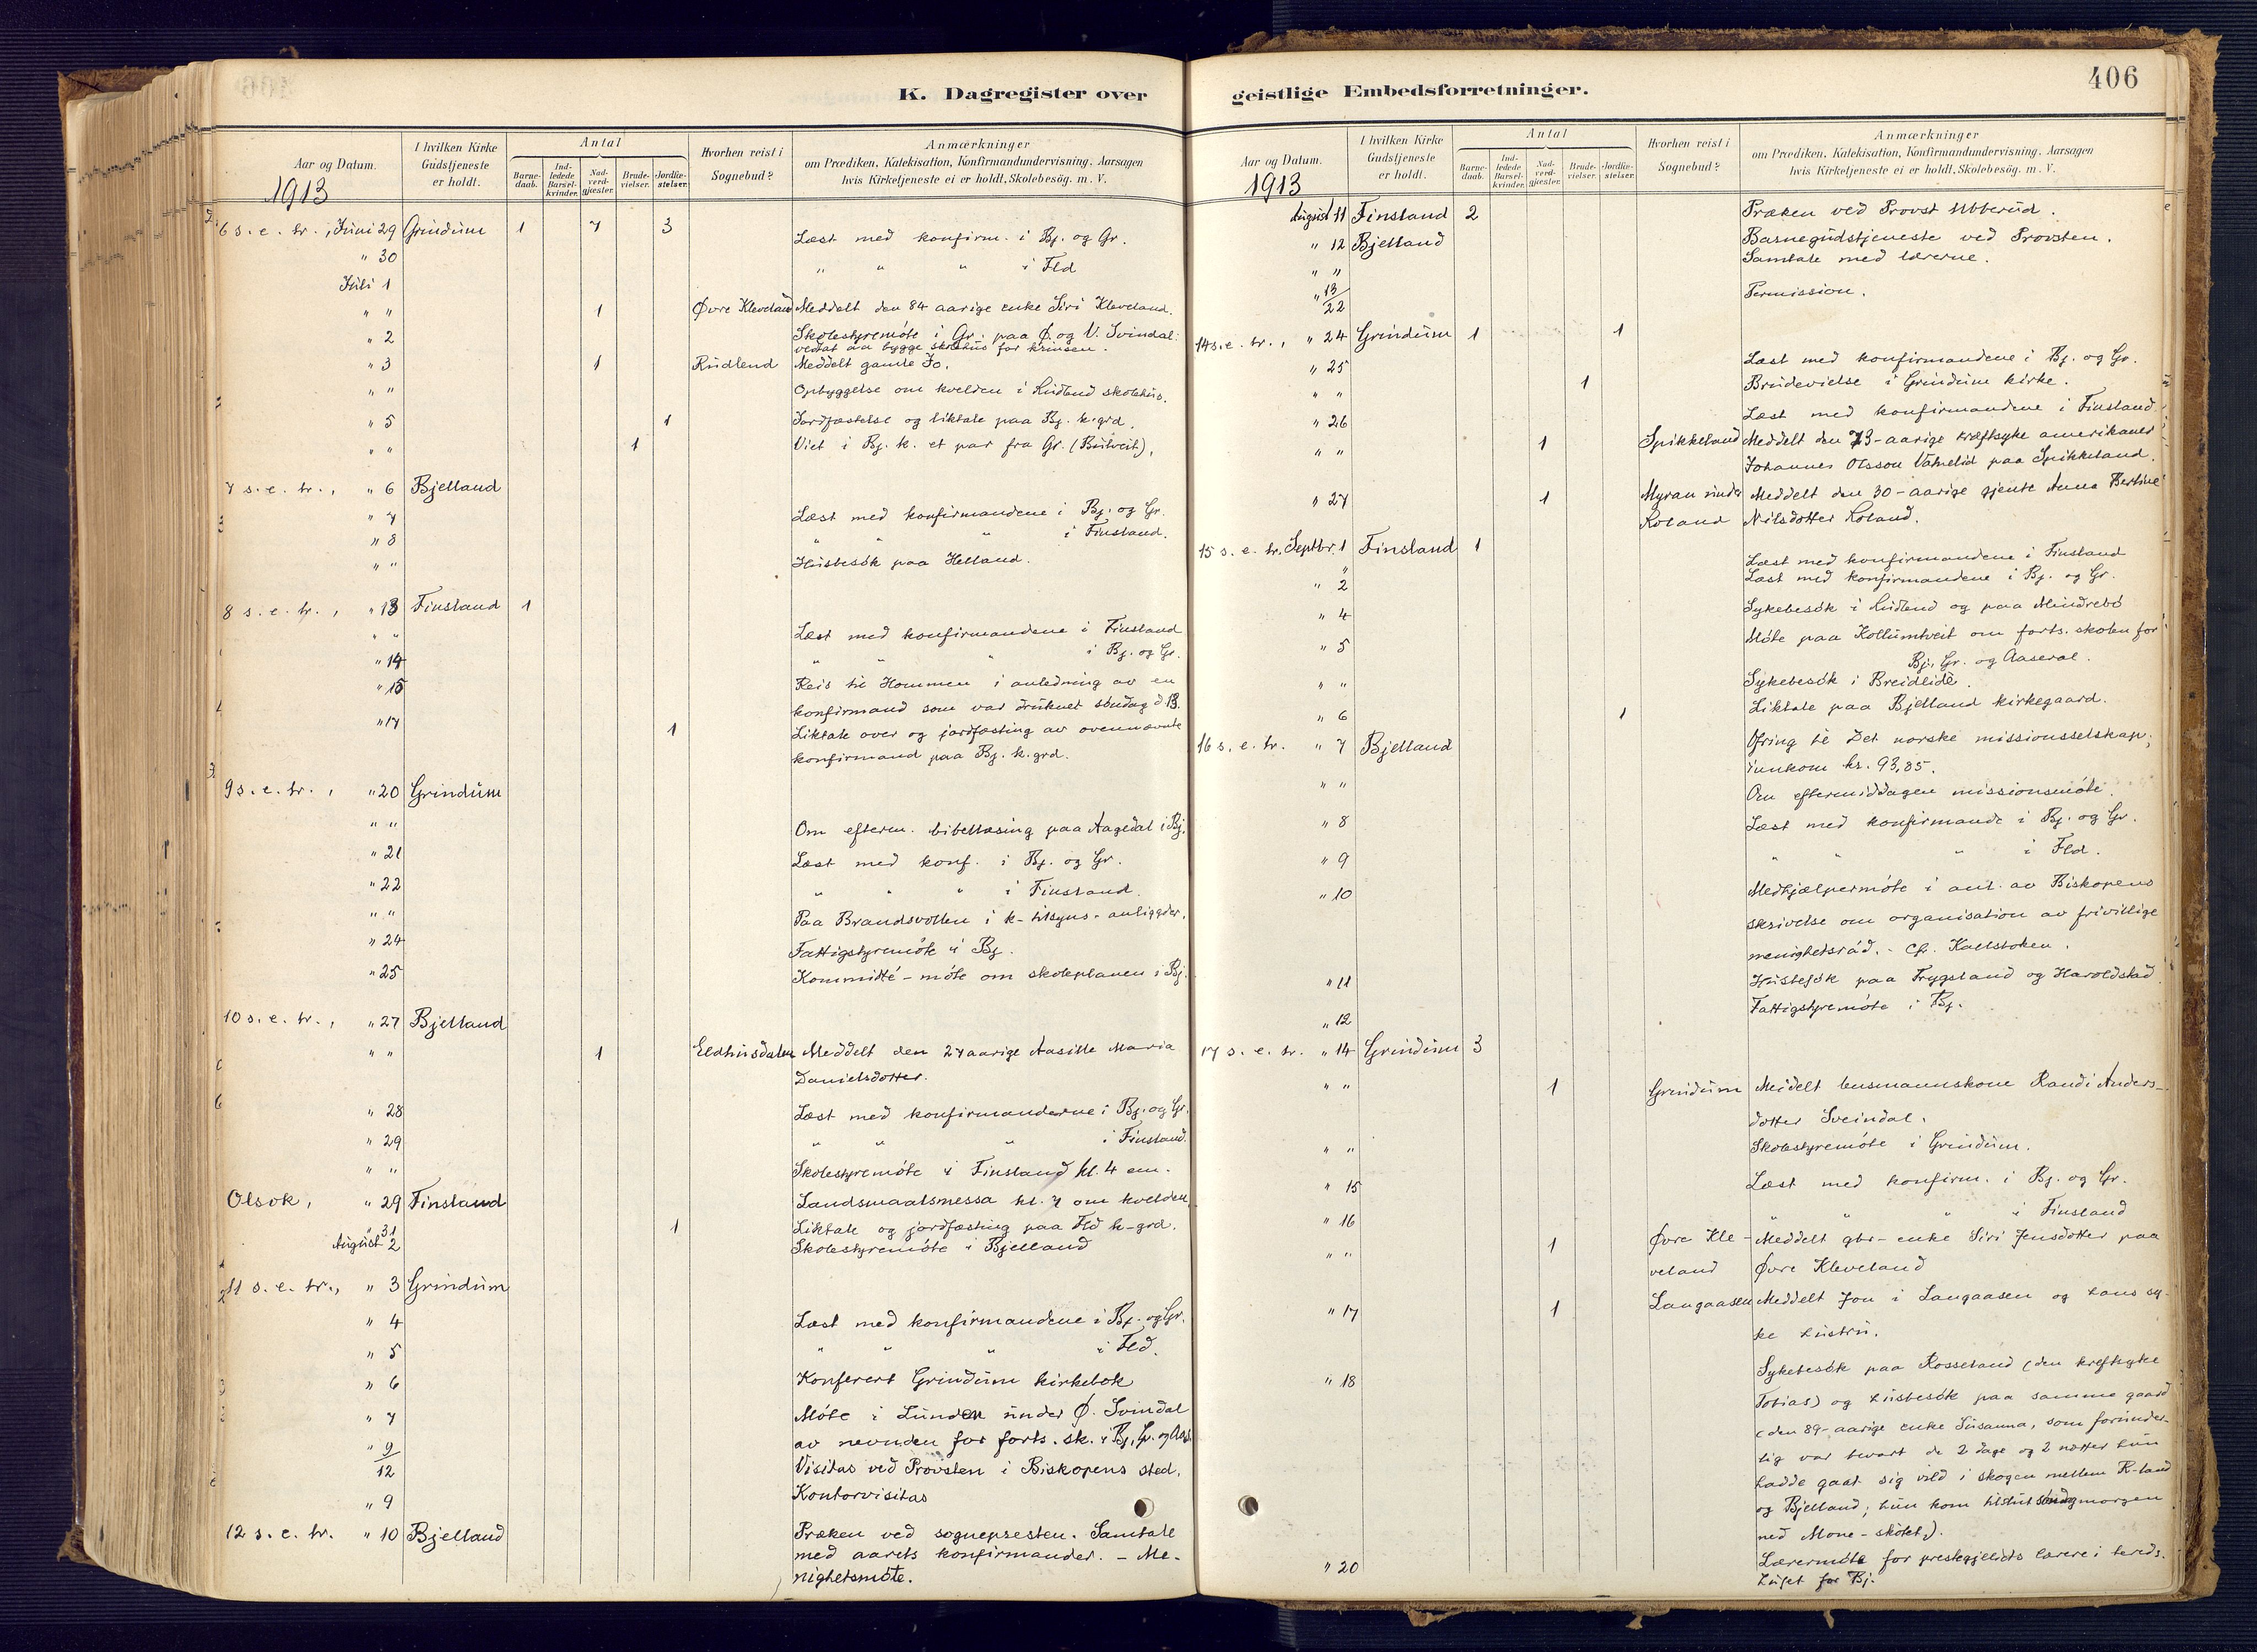 K. Dagregister over
Aar og Datum.
1913
I hvilken Kirke Gudstjeneste er holdt.
Antal
Barne-daab.
Ind-ledede Barsel-kvinder.
Nad-verd-gjæster.
Brude-vielser.
Jordfæ-stelser.
Hvorhen reist i Sognebud?
Anmærkninger
om Prædiken, Katekisation, Konfirmandundervisning. Aarsagen
hvis Kirketjeneste ei er holdt, Skolebesög. m. V.
6 s. e. tr., Juni 29 Grindum 1 7 3
" 30 Læst med konfirm. i Bj. og Gr.
Juli 1 " " " i Fld
" " 1 Øvre Kleveland Meddelt den 84 aarige enke Siri Kleveland.
" 2 Skolestyremöte i Gr. paa Ø. og V. Svindal:
vedtat aa bygge skolehus for krinsen.
" 3 1 Rudlend Meddelt gamle Jo.
" " Opbyggelse om kvelden i Rudlend skolehus.
" 5 1 Jordfæstelse og liktale paa Bj. k.grd.
" " 1 Viet i Bj. k. et par fra Gr.
7 s. e. tr., " 6 Bjelland
" 7 Læst med konfirmandene i Bj. og Gr.
" 8 " " " i Finsland.
" " Husbesök paa Helland.
8 s. e. tr., " 13 Finsland 1
" " Læst med konfirmandene i Finsland
" 14 " " " i Bj. og Gr.
" 15 Reis til Hommen i anledning av en
konfirmand som var druknet söndag d. 13.
" 17 1 Liktale over og jordfæsting av ovennævnte
konfirmand paa Bj. k.grd.
9 s. e. tr., " 20 Grindum
" " Om efterm. bibellæsing paa Aagedal i Bj.
" 21 Læst med konf. i Bj. og Gr.
" 22 " " " i Finsland.
" " Paa Brandsvollen i k-tilsyns-anliggder.
" 24 Fattigstyremöte i Bj.
" 25 Kommidté-möte om skoleplanen i Bj.
10 s. e. tr., " 27 Bjelland
" " 1 Eldhusdalen Meddelt den 27 aarige Aasille Maria
Danielsdotter.
" 28 Læst med konfirmanderne i Bj. og Gr.
" 29 " " " i Finsland.
" " Skolestyremöte i Finsland kl. 4 em.
Olsok, " 29 Finsland Landsmaalsmessa kl. 7 om kvelden.
" 31 1 Liktale og jordfæsting paa Fld k-grd.
August 2 Skolestyremöte i Bjelland
11 s. e. tr., " 3 Grindum
" 4 Læst med konfirmandene i Bj. og Gr.
" 5 " " " i Fld.
" 6 Konferert Grindum kirkebok
" 7 Möte i Lunden under Ø. Svindal
av nevnden for forts. sk. i Bj., Gr. og Aas.
" 9/12 Visitas ved Provsten i Biskopens sted.
" 9 Kontorvisitas
12 s. e. tr. " 10 Bjelland Præken ved sognepresten. Samtale
med aarets konfirmander. - Me-
nighetsmöte.
geistlige Embedsforretninger.
406
Aar og Datum.
1913
I hvilken Kirke Gudstjeneste er holdt.
Antal
Barne-daab.
Ind-ledede Barsel-kvinder.
Nad-verd-gjæster.
Brude-vielser.
Jordfæ-stelser.
Hvorhen reist i Sognebud?
Anmærkninger
om Prædiken, Katekisation, Konfirmandundervisning. Aarsagen
hvis Kirketjeneste ei er holdt, Skolebesög. m. V.
August 11 Finsland 2 Præken ved Provst Ubberud.
" 12 Bjelland Barnegudstjeneste ved Provsten.
" " Samtale med lærerne.
" 13/22 Permission.
14 s. e. tr., " 24 Grindum 1 1
" 25 Læst med konfirmandene i Bj. og Gr.
" " 1 Brudevielse i Grindum kirke.
" 26 Læst med konfirmandene i Finsland.
" " 1 Spikkeland Meddelt den 73-aarige kræftsyke amerikaner
Johannes Olsson paa Spikkeland.
" 27 1 Myran under Meddelt den 30-aarige gjente Anna Bertine
Roland Nilsdotter Roland.
15 s. e. tr. Septbr. 1 Finsland 1
" Læst med konfirmandene i Finsland
" 2 Læst med konfirmandene i Bj. og Gr.
" 4 Sykebesök i Rudlend og paa Mindrebö
" 5 Möte paa Kollumtveit om forts. skolen for
Bj., Gr. og Aaseral.
" " Sykebesök i Breidlidè.
" 6 1 Liktale paa Bjelland kirkegaard.
16 s. e. tr. " 7 Bjelland Ofring til Det norske missionsselskap;
innkom kr. 93,85.
" " Om eftermiddagen missionsmöte.
" 8 Læst med konfirmande i Bj. og Gr.
" 9 " " " i Fld.
" 10 Medhjælpermöte i anl. av Biskopens
skrivelse om organisation av frivillige
menighetsråd. - Cfr. Kallsboken.
" 11 Husbesök paa Trygsland og Haroldstad
" 12 Fattigstyremöte i Bj.
17 s. e. tr. " 14 Grindum 3
" " 1 Grindum Meddelt lensmannskone Randi Anders-
dotter Sveindal.
" " Skolestyremöte i Grindum.
" 15 Læst med konfirm. i Bj. og Gr.
" 16 " " " i Finsland
" " 1 Øvre Kle- Meddelt gbr-enke Siri Jensdotter paa
veland Øvre Kleveland
" 17 1 Langaasen Meddelt Jon i Langaasen og hans sy-
ke hustru.
" 18 Sykebesök paa Rosseland (den kreftsyke
Tobias) og husbesök paa samme gaard
(den 89-aarige enke Susanna, som forunder-
lig var bevart de 2 dage og 2 nætter hun
hadde gaat sig vild i skogen mellem R-land
og Bjelland; hun kom tilslut söndagmorgen
ned Mone-skötet).
" 20 Lærermöte for prestegjeldets lærere i hereds-
huset for Bj.